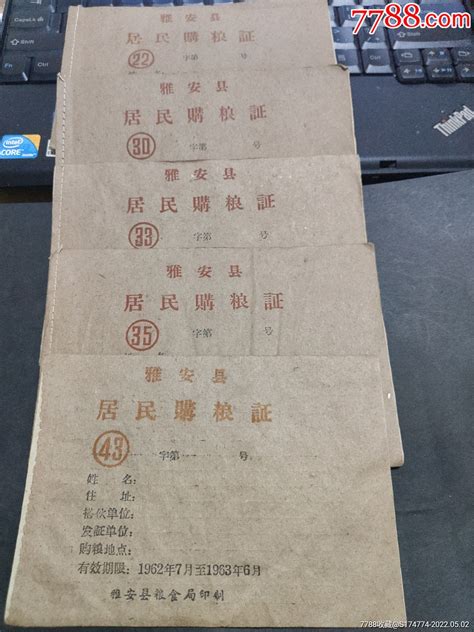 7788.com
雅安县
居民購粮証
22 字第 号
雅安县
居民購粮証
30 字第 号
雅安县
居民購粮証
33 字第 号
雅安县
居民購粮証
35 字第 号
雅安县
居民購粮証
43 字第 号
姓名:
住址:
搭伙单位:
发証单位:
购粮地点:
有效期限: 1962年7月至1963年6月
雅安县粮食局印制
intel
CORE
ThinkPad
CapsLk
Shift
Ctrl
7788收藏@S174774-2022.05.02